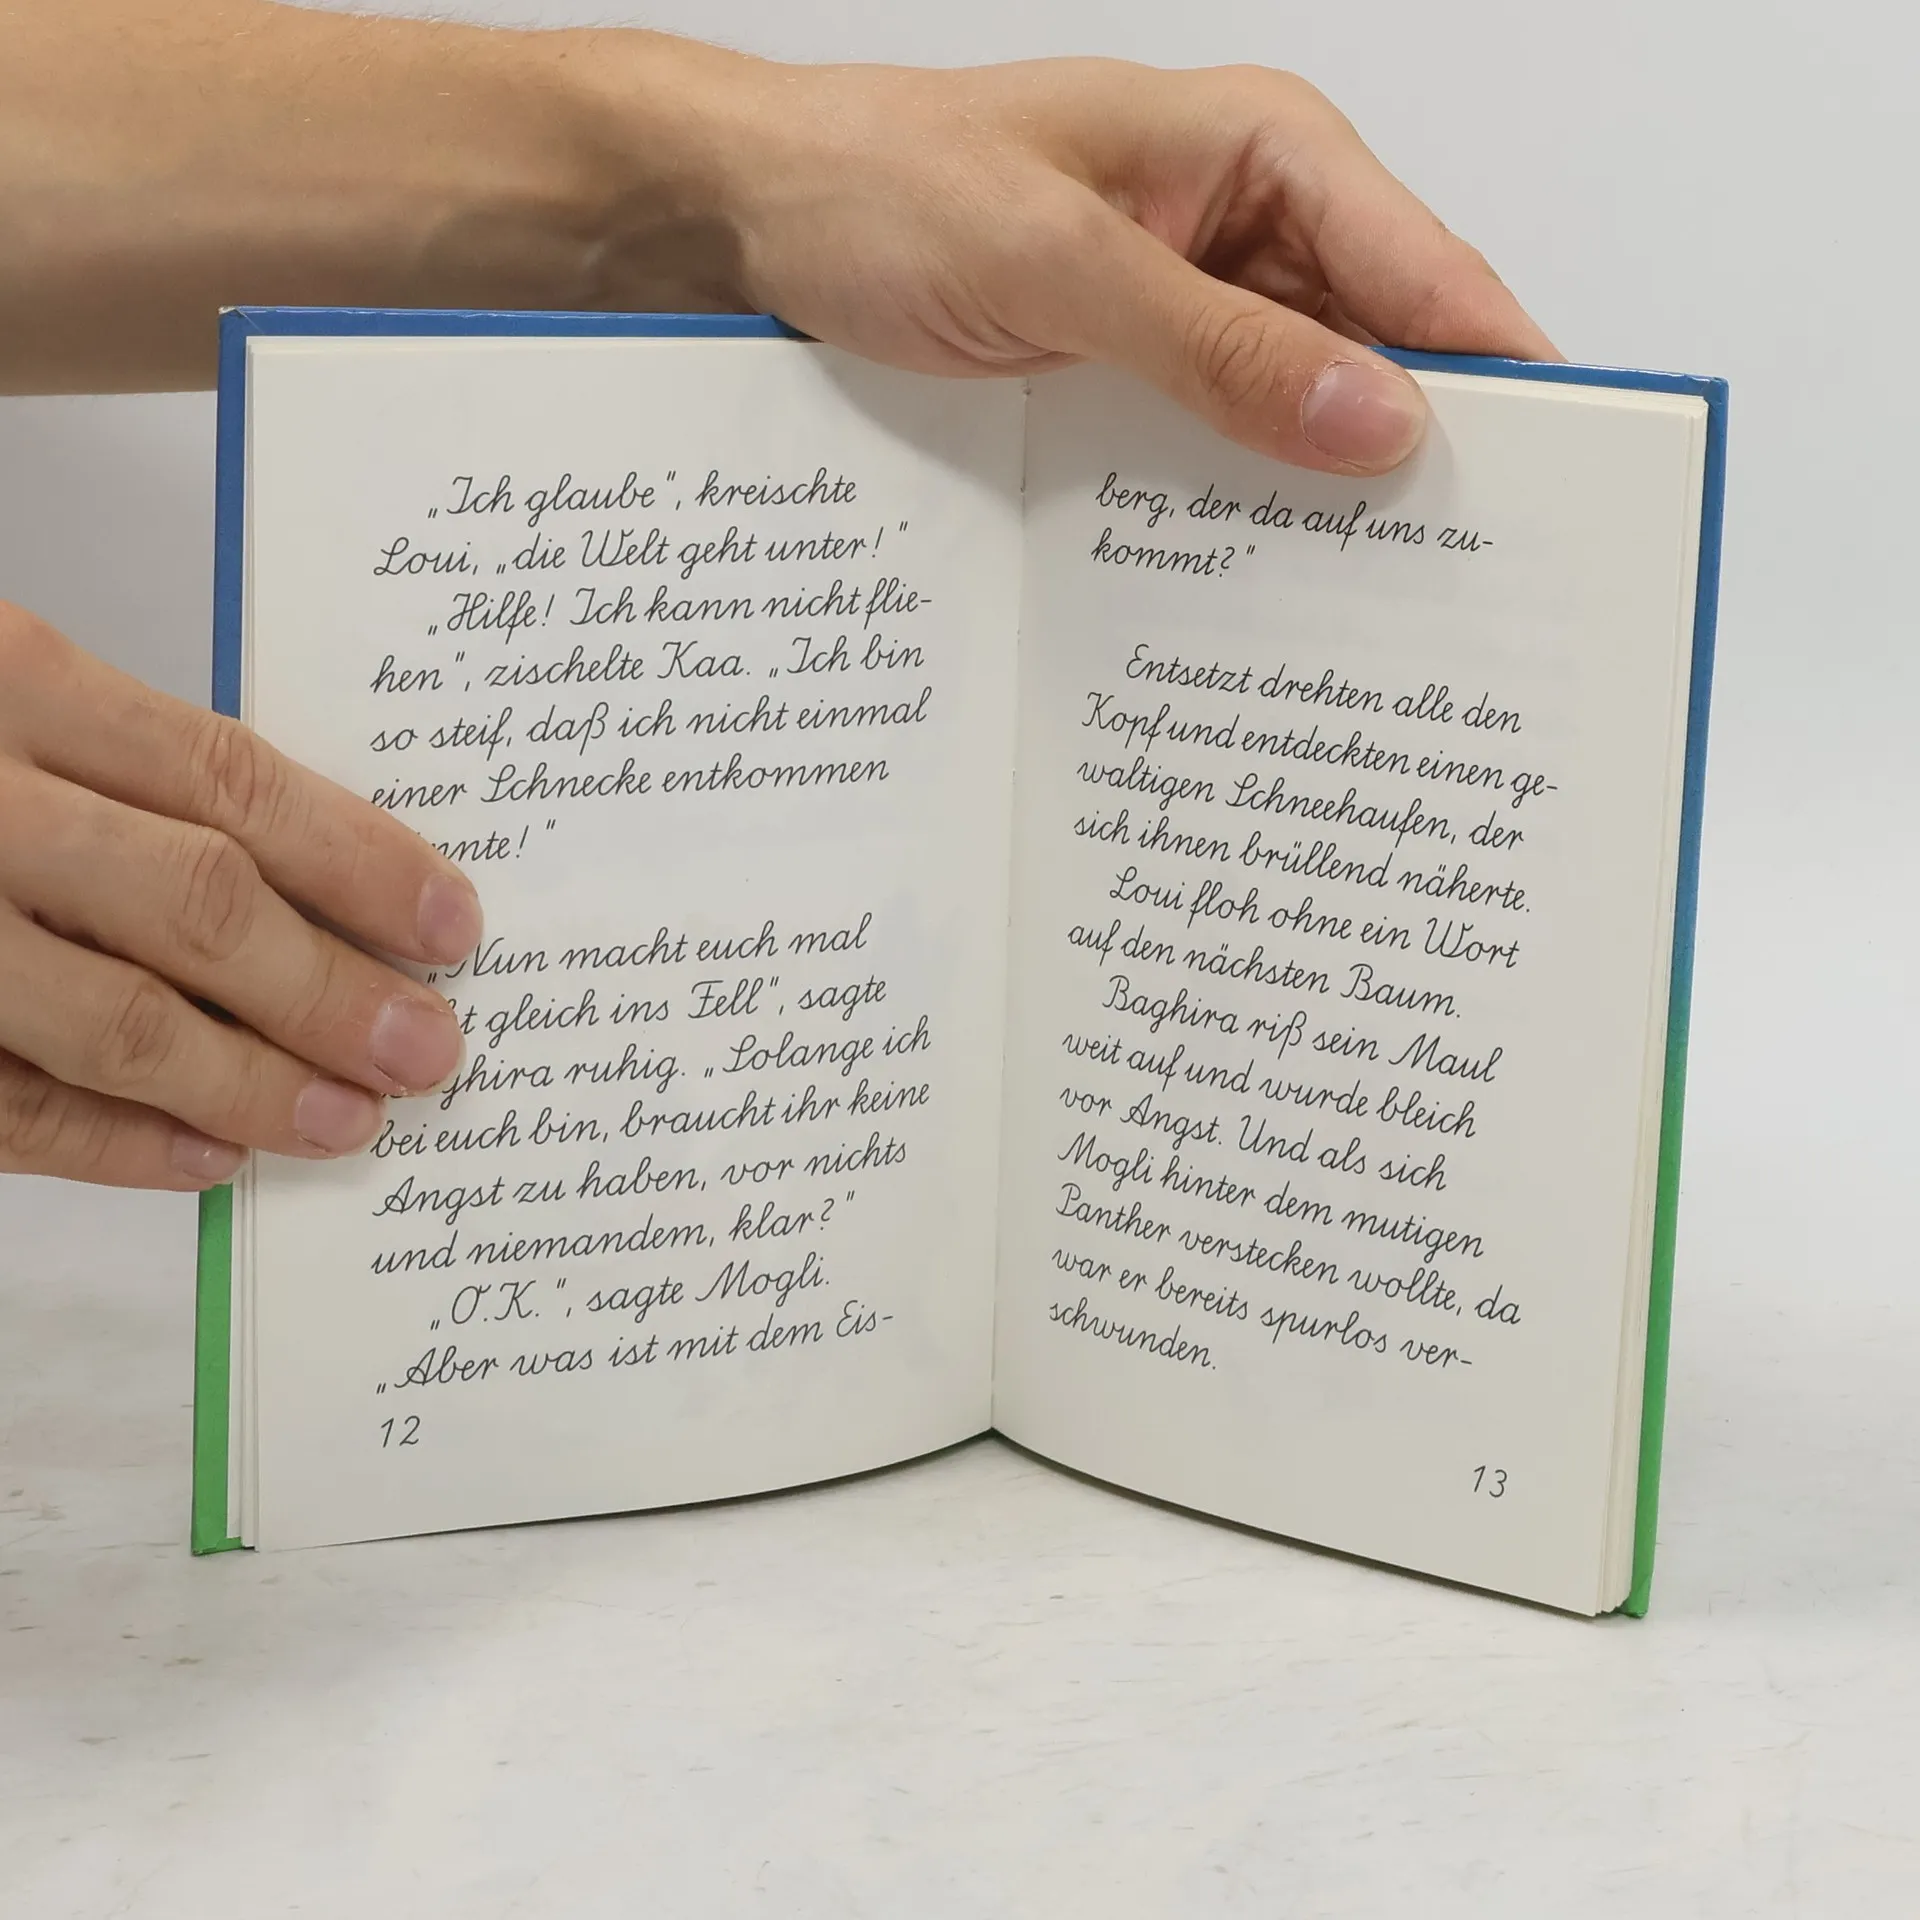 „Ich glaube", kreischte
Loui, „die Welt geht unter!"
„Hilfe! Ich kann nicht flie-
hen", zischelte Kaa. „Ich bin
so steif, daß ich nicht einmal
einer Schnecke entkommen
nnte!"
„Nun macht euch mal
t gleich ins Fell", sagte
ghira ruhig. „Solange ich
bei euch bin, braucht ihr keine
Angst zu haben, vor nichts
und niemandem, klar?"
„O.K.", sagte Mogli.
„Aber was ist mit dem Eis-
12
berg, der da auf uns zu-
kommt?"
Entsetzt drehten alle den
Kopf und entdeckten einen ge-
waltigen Schneehaufen, der
sich ihnen brüllend näherte.
Loui floh ohne ein Wort
auf den nächsten Baum.
Baghira riß sein Maul
weit auf und wurde bleich
vor Angst. Und als sich
Mogli hinter dem mutigen
Panther verstecken wollte, da
war er bereits spurlos ver-
schwunden.
13